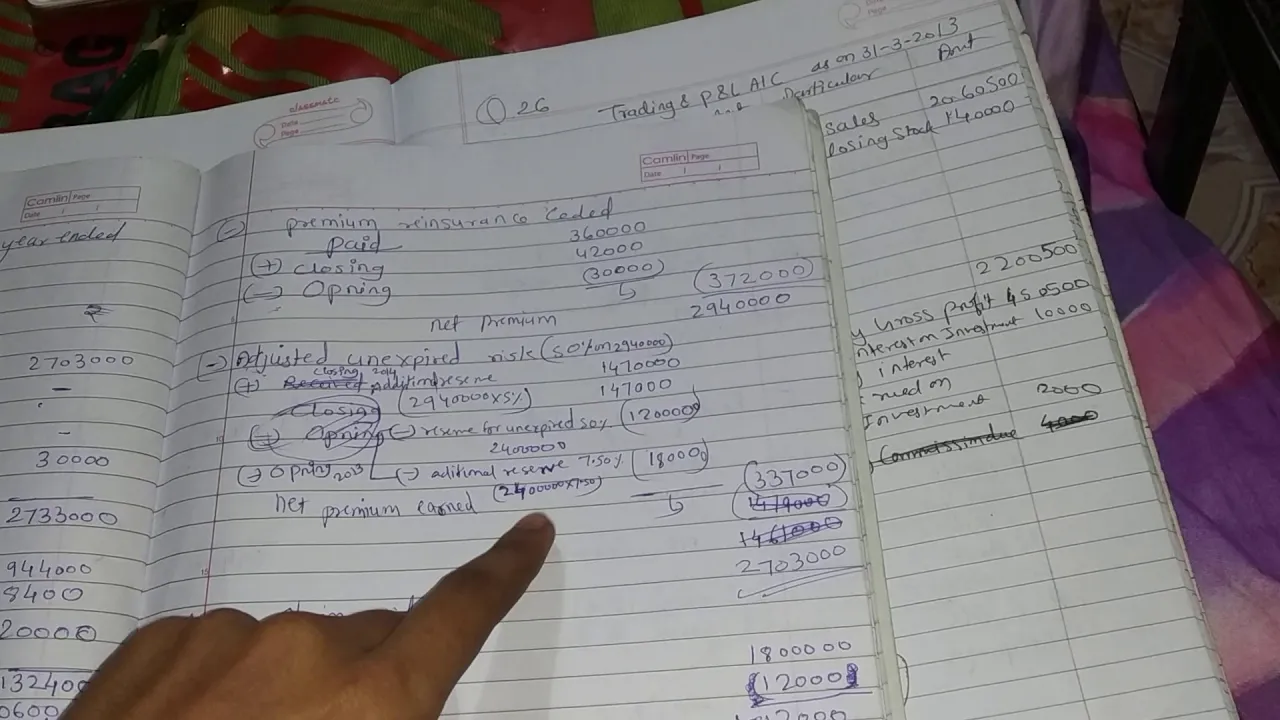 classmate
Date
Page
Q.26
Trading & P&L A/C as on 31-3-2013
Particular
Amt
sales 2060500
losing Stock 140000
2200500
y Gross profit 450500
nterest on Investment 10000
interest
Investment
2000
Camlin Page
Date
year ended
₹
2703000
30000
2733000
944000
8400
20000
132400
0600
Camlin Page
Date
(-) premium reinsurance ceded
paid 360000
(+) closing 42000
(-) Opning (30000) (372000)
net premium 2940000
(-) Adjusted unexpired risk (50% on 2940000)
1470000
(+) closing 2014 additional reserve
(2940000x5%) 147000
Closing
(-) Opning (-) reserve for unexpired 50% (120000)
2400000
(-) Opning 2013 (-) aditional reserve 7.50% (18000)
(2400000x7.50) (337000)
net premium earned
2703000
1800000
(12000)